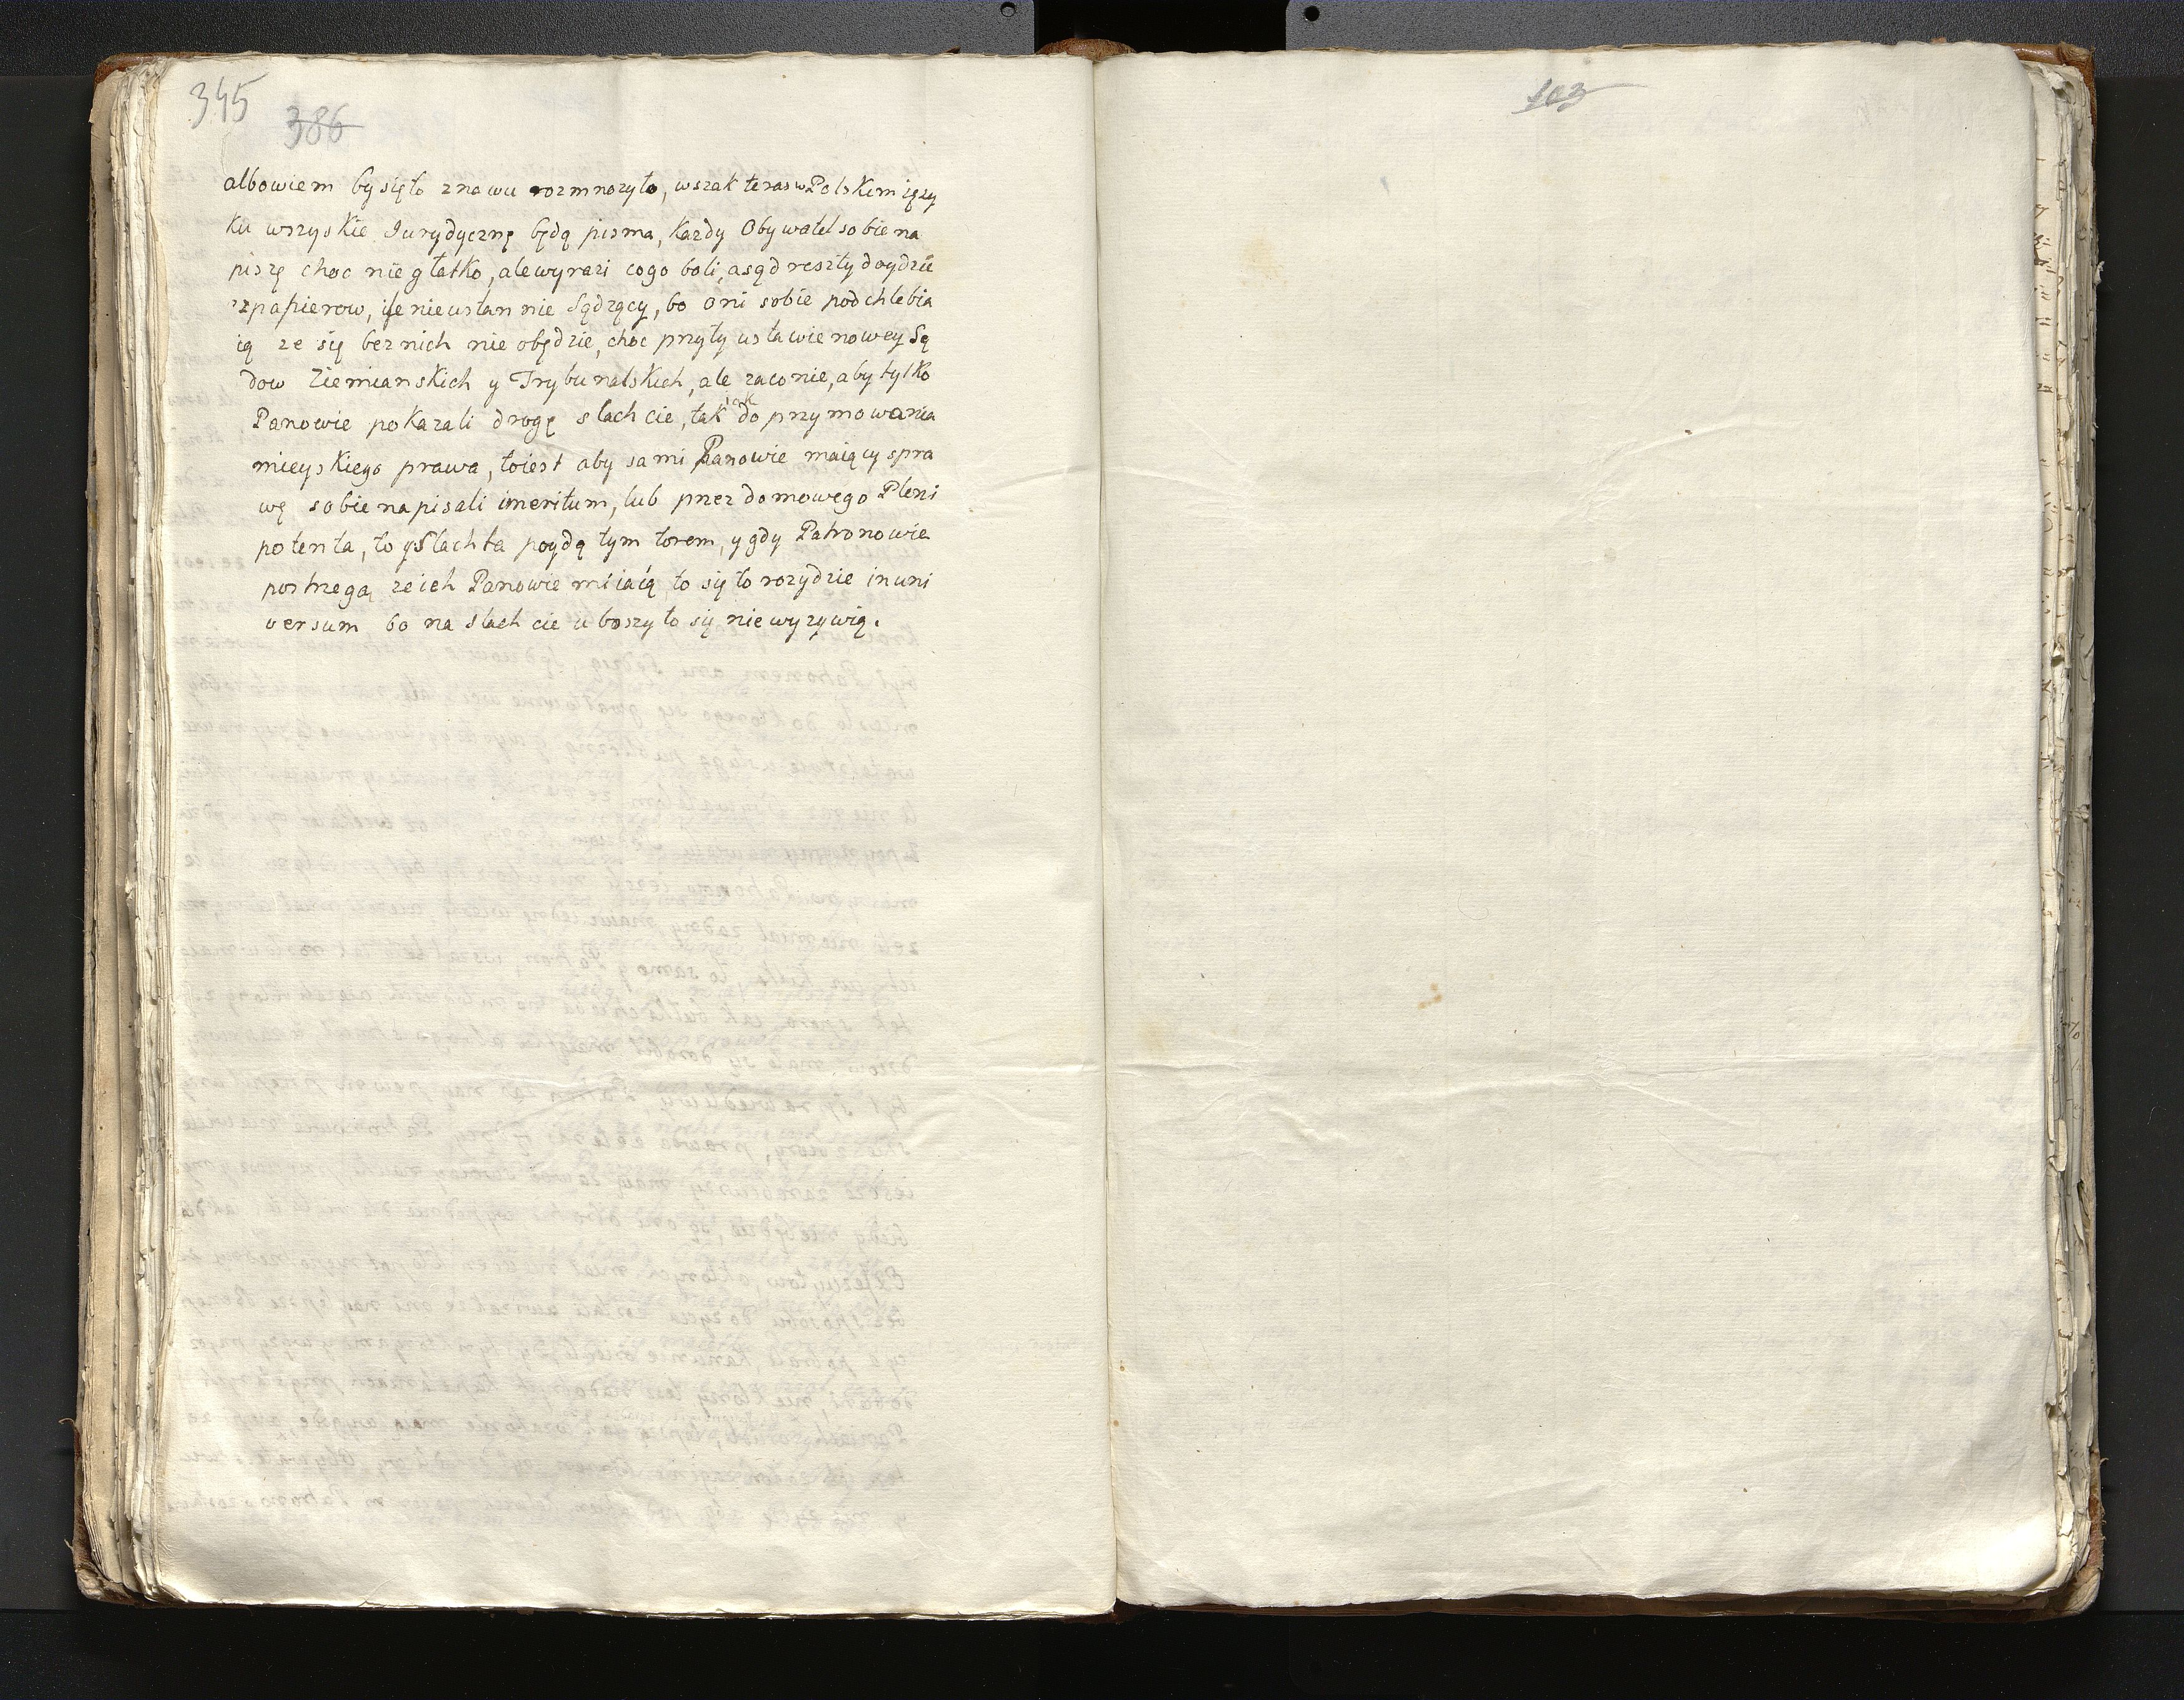 345
386
albowiem by się to znowu rozmnozyło, wszak teras w Polskim ięzy
ku wszyskie Iurydycznę będą pisma, Kazdy Obywatel sobie na
piszę choc nie głatko, ale wyrazi co go boli, a sąd reszty doydzie
z papierow, ile nieustannie Sądzący, bo oni sobie podchlebia
ią ze się bez nich nie obędzie, choc przy ty ustawie nowey Są
dow Ziemianskich y Trybunalskich, ale zaco nie, aby tylko
Panowie pokazali drogę slachcie, tak iak do przymowania
mieyskiego prawa, to iest aby sami Panowie maiący spra
wę sobie napisali imeritum, lub przez domowego Pleni
potenta, to y Slachta poydą tym torem, y gdy Patronowie
postrzegą ze ich Panowie miiaią to się to rozydzie in uni
versum bo na slachcie uboszy to się nie wyzywią.
103